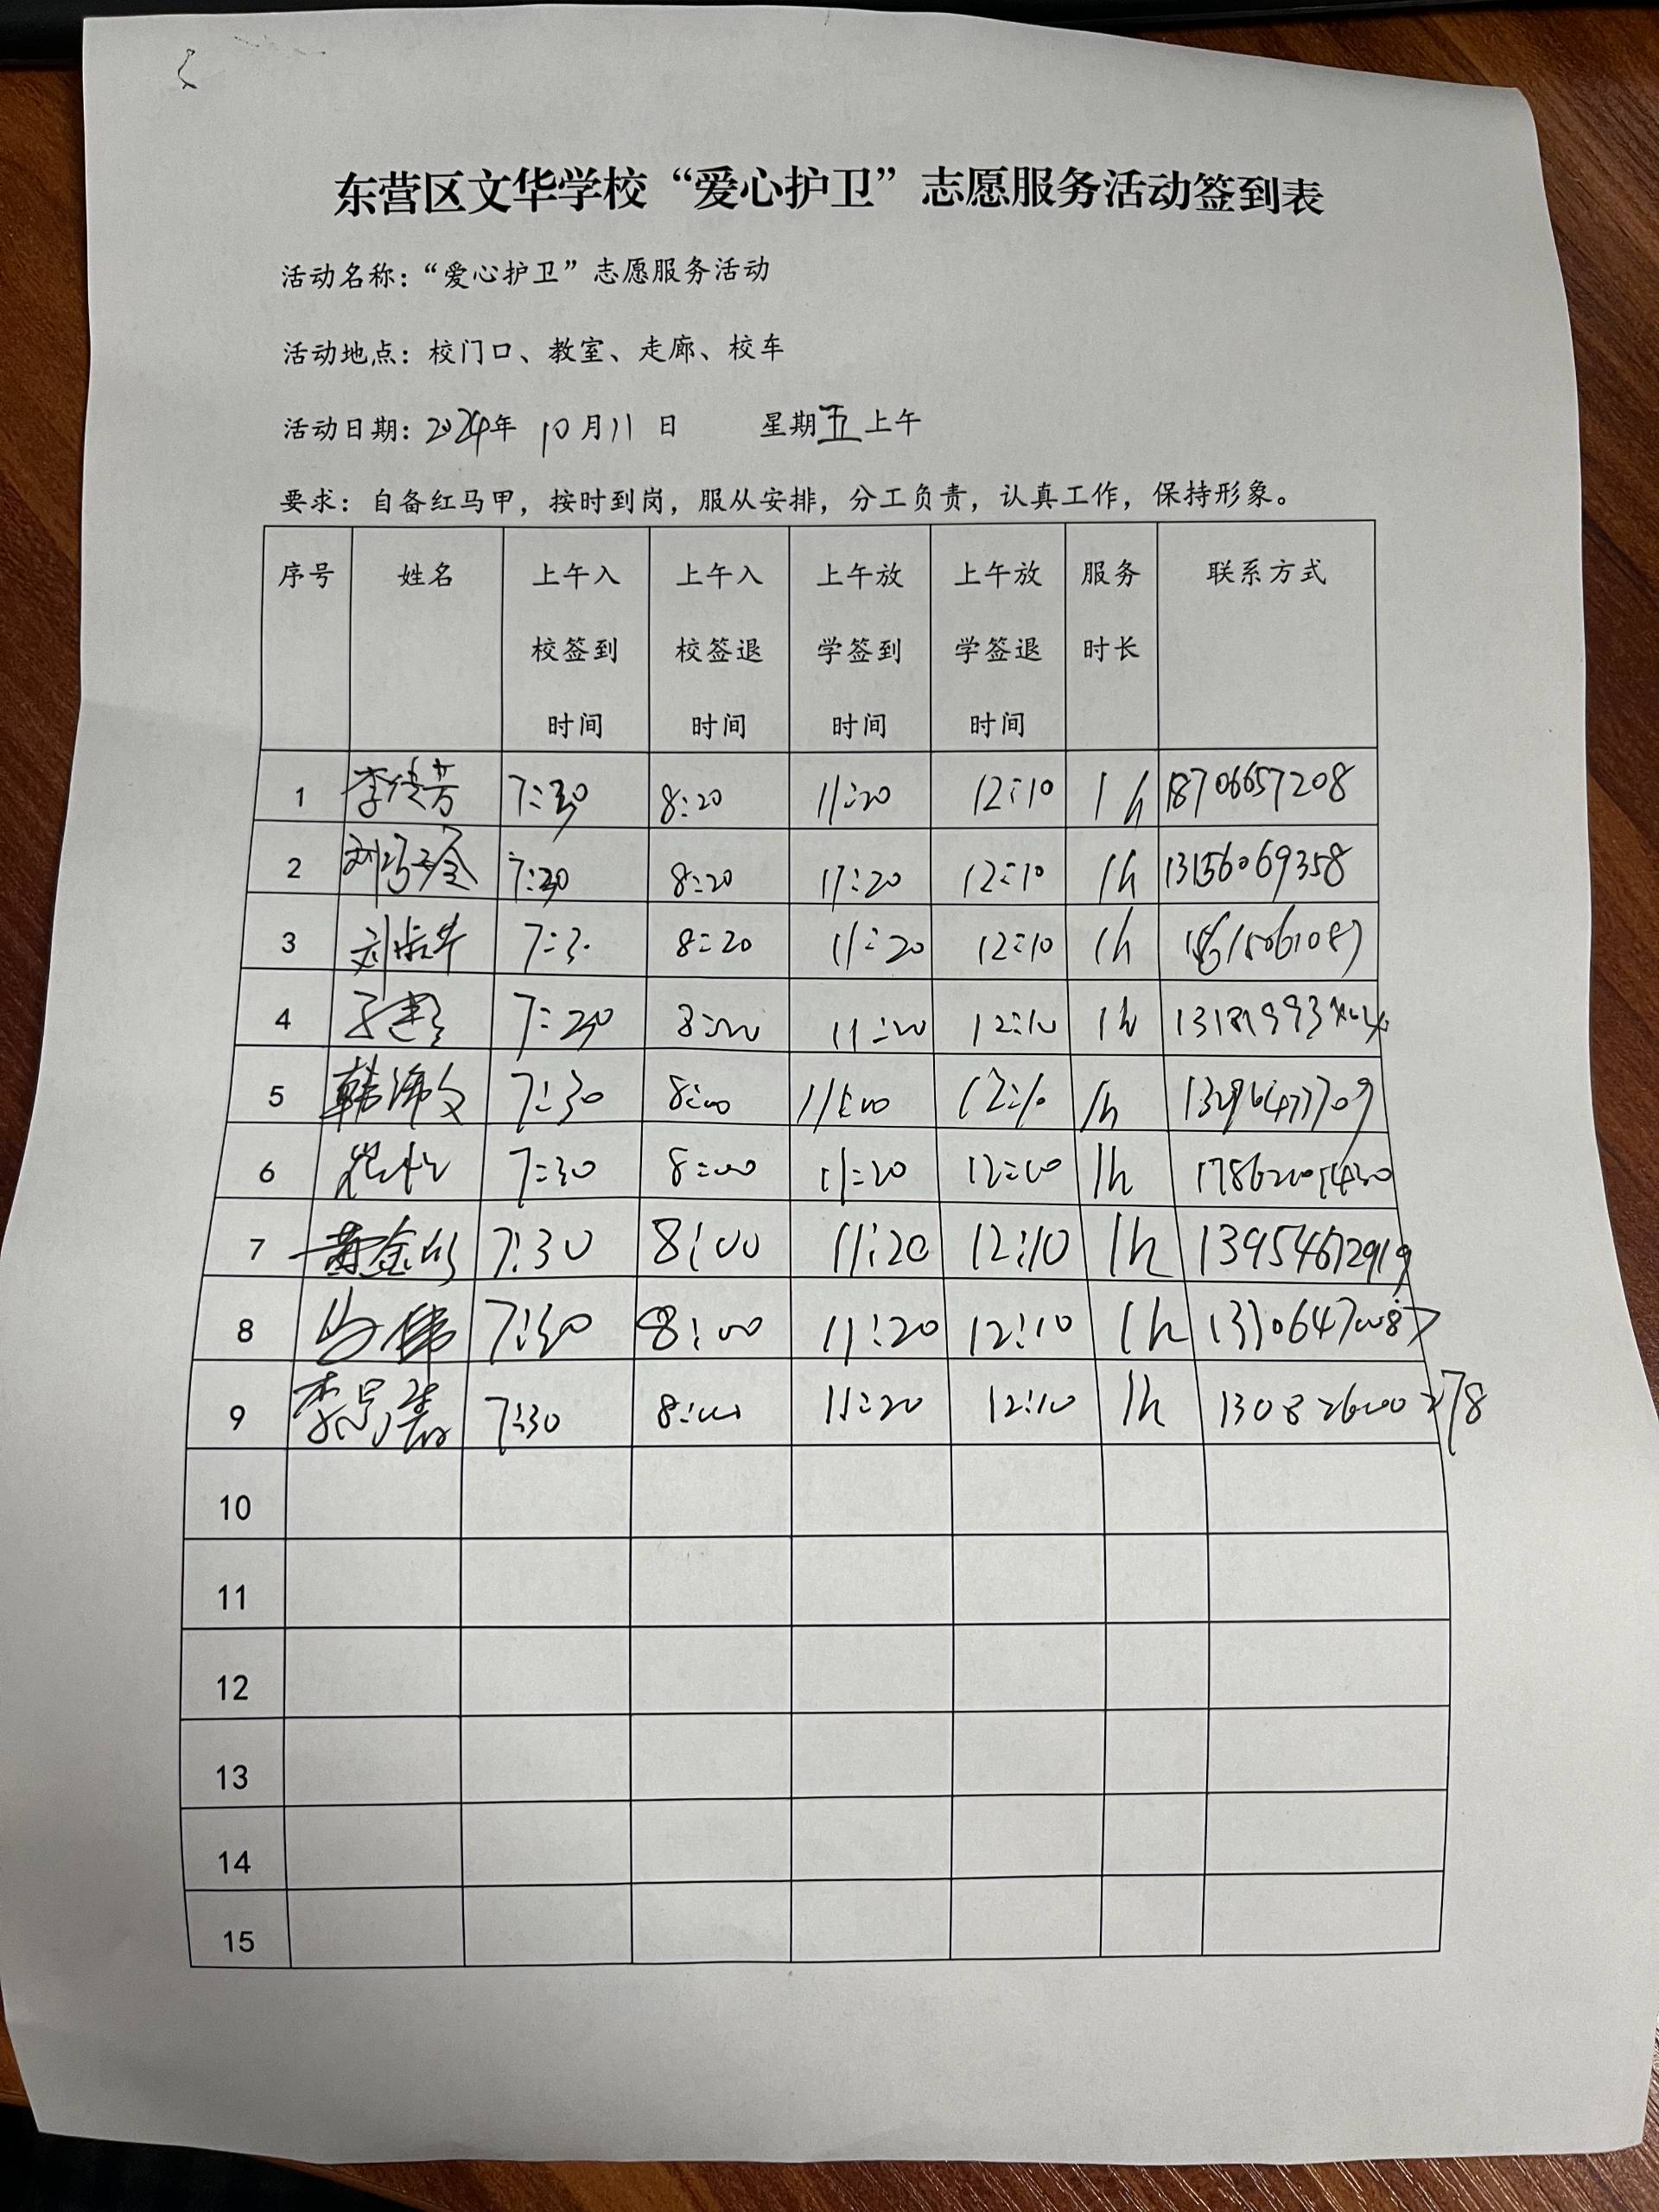 东营区文华学校“爱心护卫”志愿服务活动签到表
活动名称：“爱心护卫”志愿服务活动
活动地点：校门口、教室、走廊、校车
活动日期：2024年 10月11日 星期五上午
要求：自备红马甲，按时到岗，服从安排，分工负责，认真工作，保持形象。
序号 姓名 上午入校签到时间 上午入校签退时间 上午放学签到时间 上午放学签退时间 服务时长 联系方式
1 李传芳 7:30 8:20 11:20 12:10 1h 18706657208
2 7:30 8:20 11:20 12:10 1h 13156069358
3 7:30 8:20 11:20 12:10 1h
4 7:30 8:20 11:20 12:10 1h
5 7:30 8:00 12:10 1h
6 7:30 8:00 11:20 12:00 1h
7 7:30 8:00 11:20 12:10 1h 13954672919
8 马伟 7:30 8:00 11:20 12:10 1h
9 7:30 8:00 11:20 12:10 1h
10
11
12
13
14
15